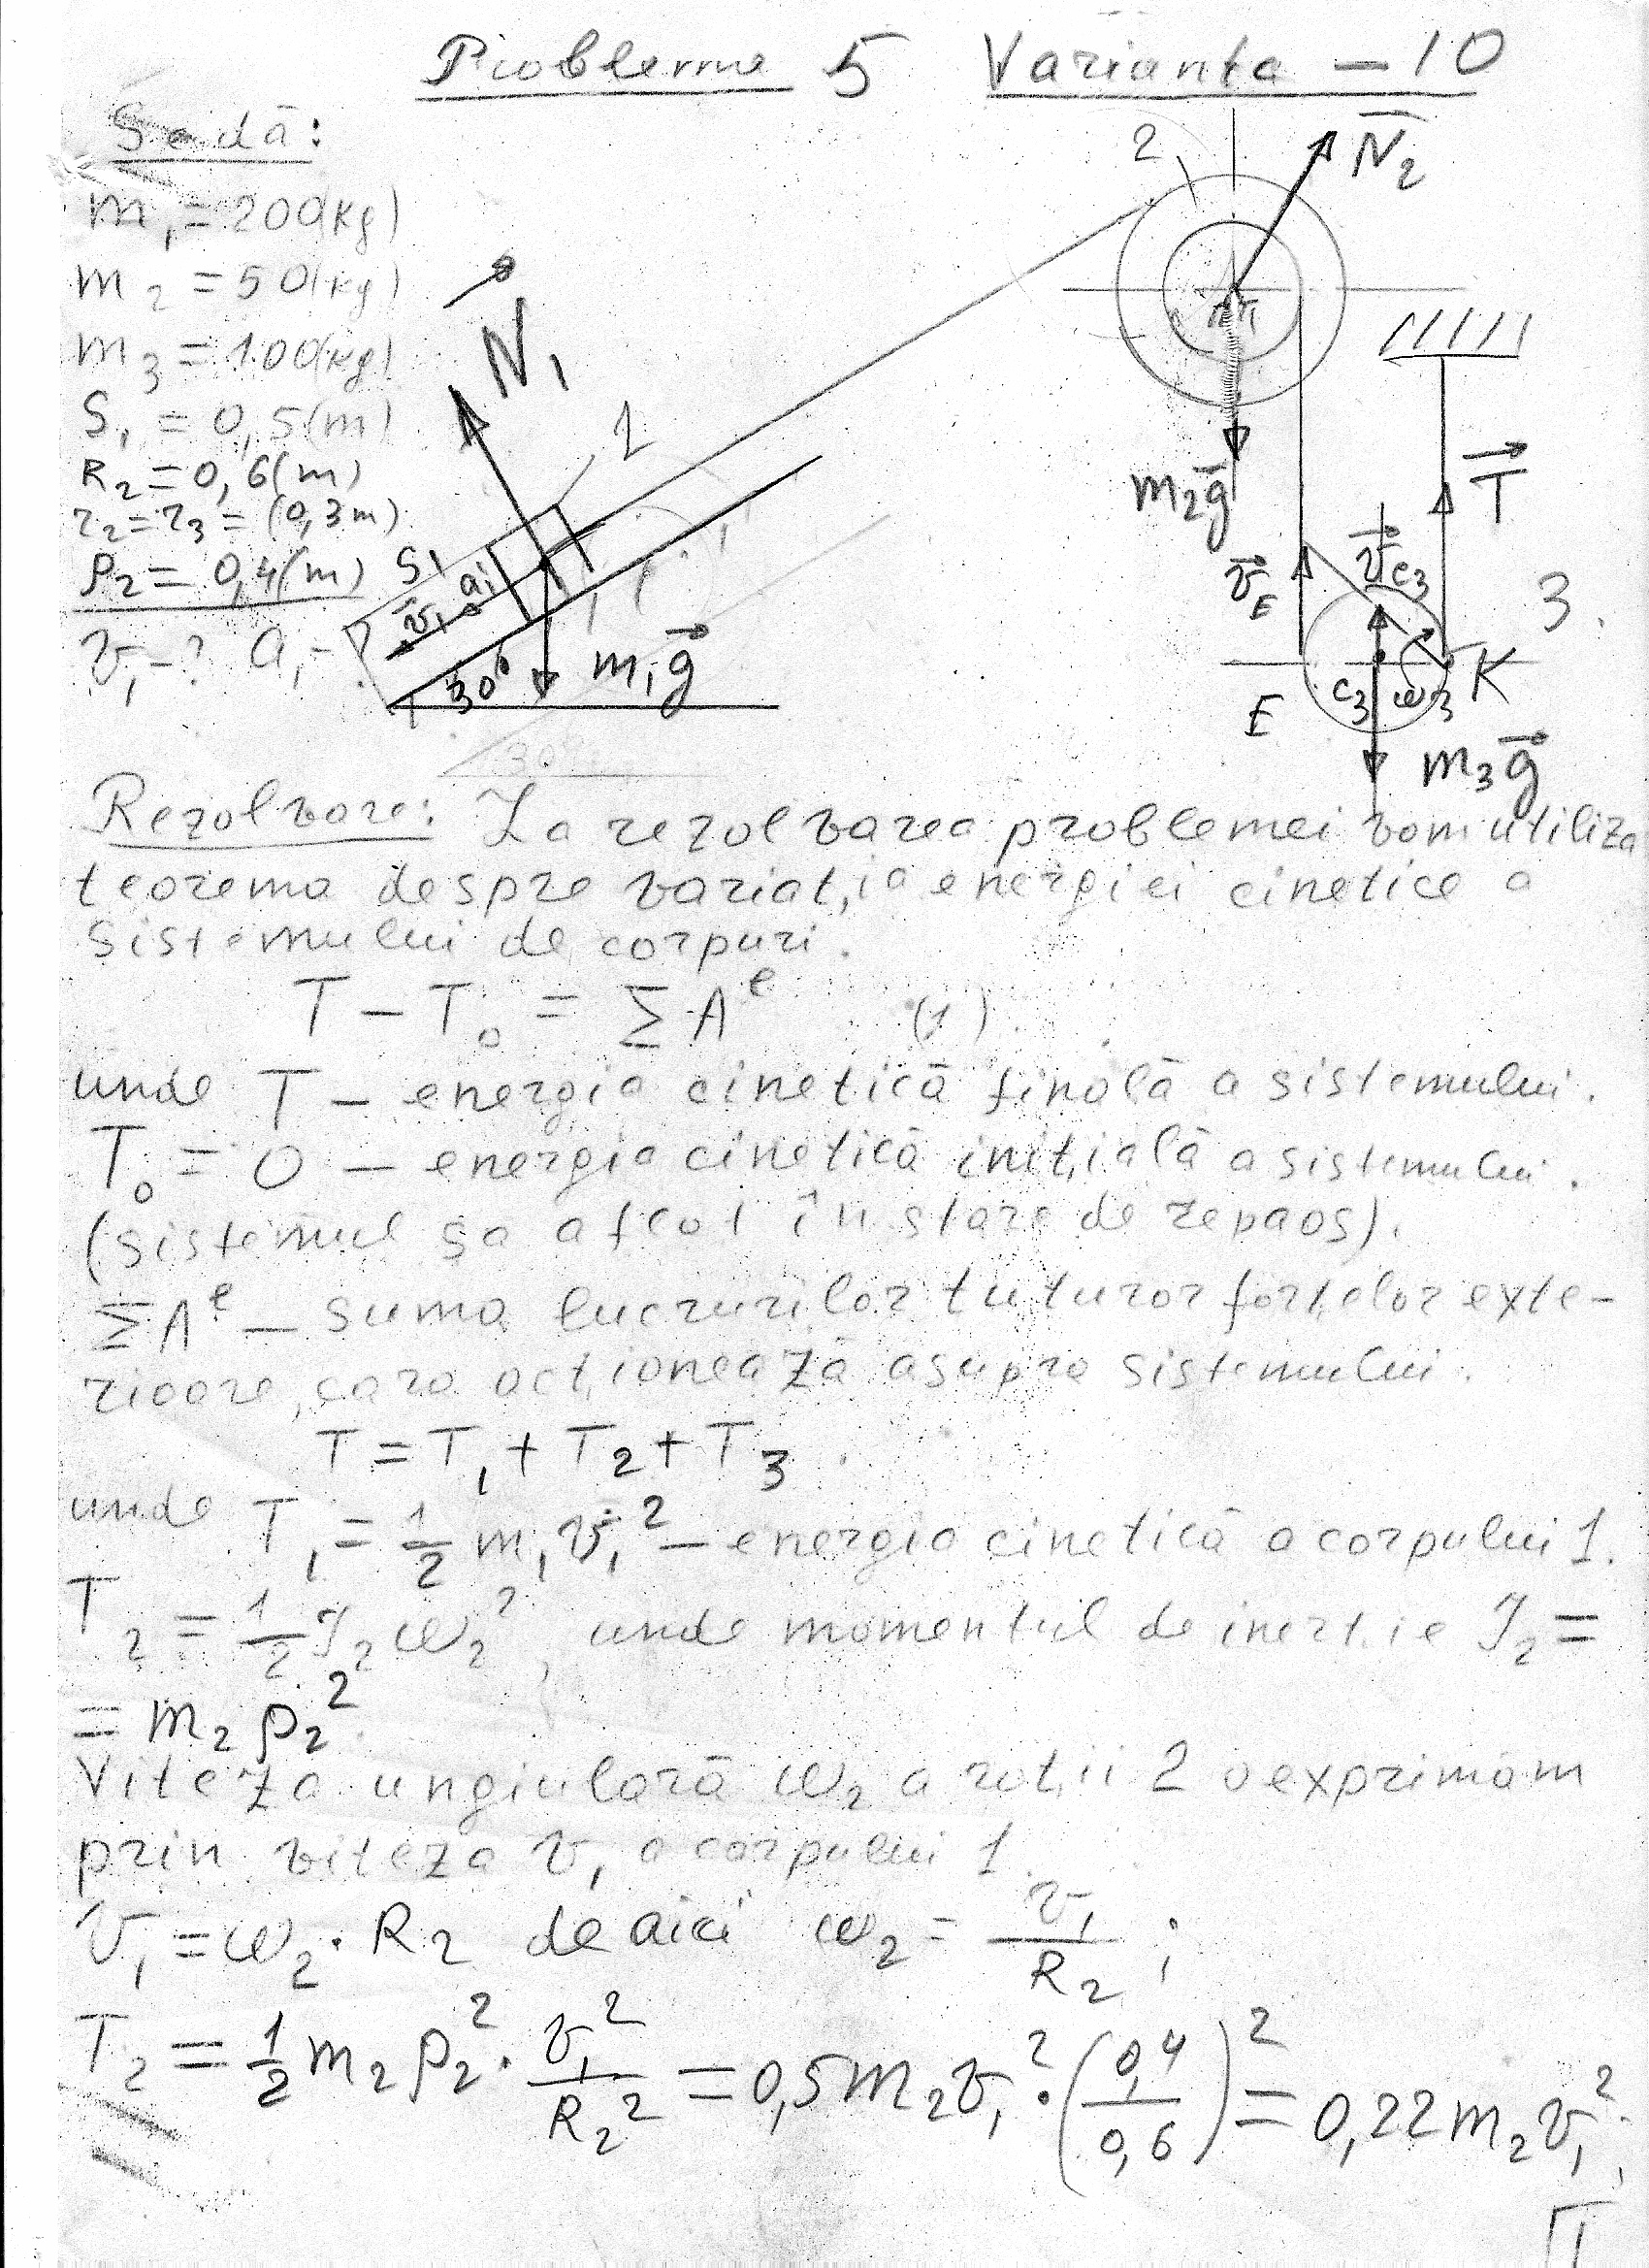 Probleme 5 Varianta – 10
Se dă:
m₁ = 200(kg)
m₂ = 50(kg)
m₃ = 100(kg)
S₁ = 0,5(m)
R₂ = 0,6(m)
r₂ = r₃ = (0,3m)
ρ₂ = 0,4(m)
v₁ - ? a₁ - ?
N₁
1
S₁
a₁
v̄₁
30°
m₁g
2
N̄₂
m₂g
T
v_E
v_c₃
3.
E
c₃
ω₃
K
m₃g
30°
Rezolvare: La rezolvarea problemei vom utiliza
teorema despre variația energiei cinetice a
sistemului de corpuri.
T – T₀ = ΣAᵉ (1).
unde T – energia cinetică finală a sistemului.
T₀ = 0 – energia cinetică inițială a sistemului.
(sistemul sa aflat în stare de repaos).
ΣAᵉ – suma lucrurilor tuturor forțelor exte-
rioare, care acționează asupra sistemului.
T = T₁ + T₂ + T₃.
unde T₁ = 1/2 m₁v₁² – energia cinetică a corpului 1.
T₂ = 1/2 J₂ω₂², unde momentul de inerție J₂ =
= m₂ρ₂².
Viteza ungiulară ω₂ a roții 2 o exprimăm
prin viteza v₁ a corpului 1.
v₁ = ω₂ · R₂ de aici ω₂ = v₁/R₂ ;
T₂ = 1/2 m₂ρ₂² · v₁²/R₂² = 0,5m₂v₁² · (0,4/0,6)² = 0,22m₂v₁²;